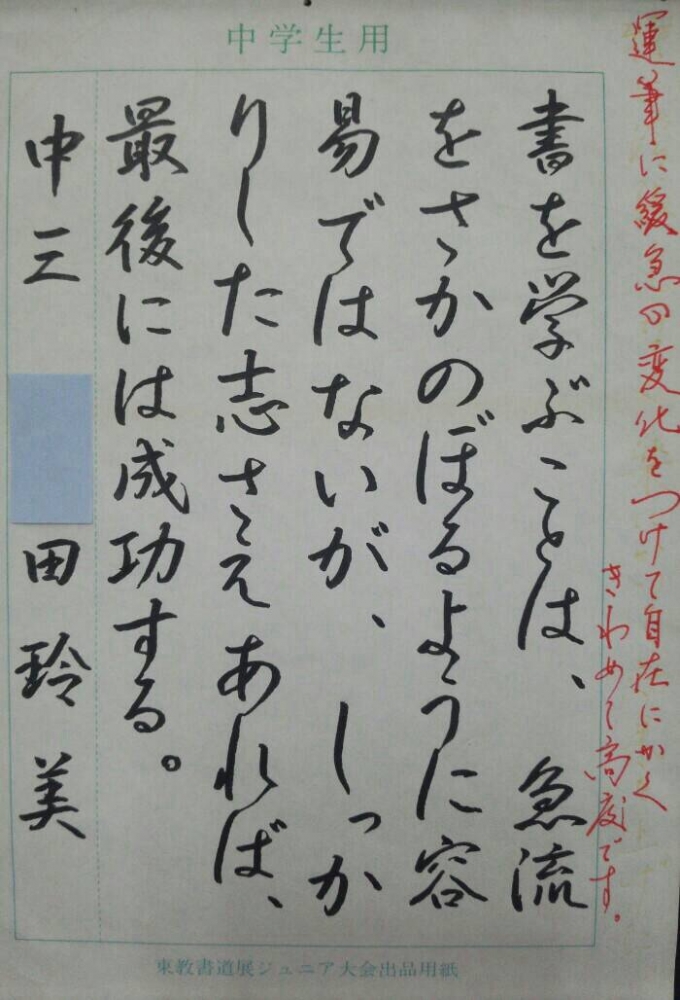 中学生用
運筆に緩急の変化をつけて自在にかく
きわめて高度です。
書を学ぶことは、急流
をさかのぼるように容
易ではないが、しっか
りした志さえあれば、
最後には成功する。
中三 田玲美
東教書道展ジュニア大会出品用紙